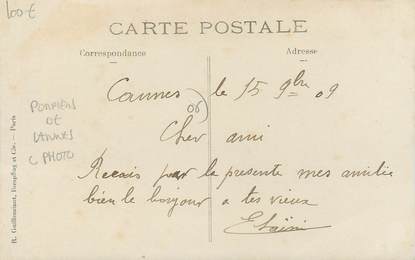 100 €
CARTE POSTALE
Correspondance
Adresse
Cannes le 15 9bre 09
(06)
POMPIERS
DE
CANNES
C PHOTO
Cher ami
Recois par la presente mes amitie
bien le bonjour a tes vieux
R. Guilleminot, Bœspflug et Cie. — Paris